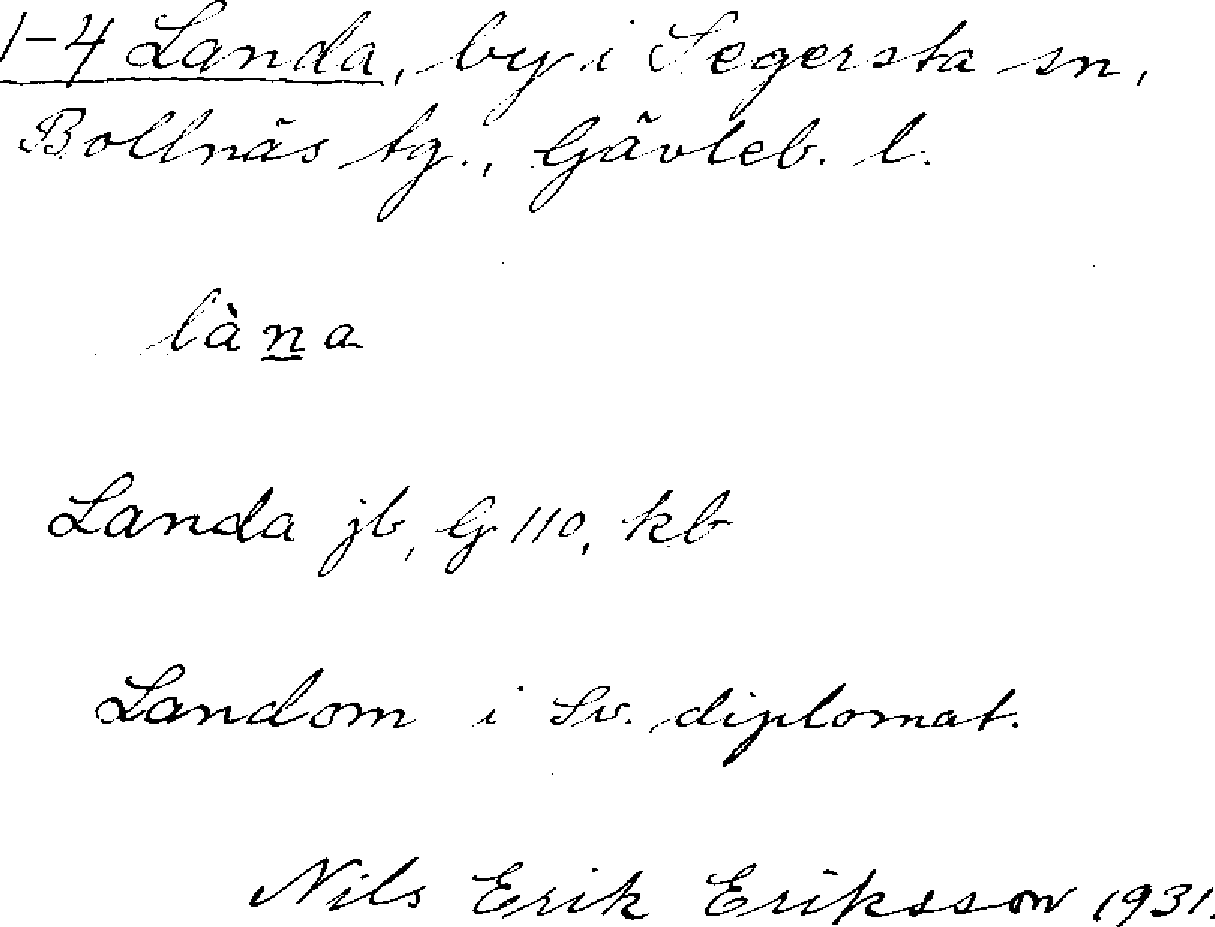 1-4 Landa, by i Segersta sn,
Bollnäs tg., Gävleb. l.
làn̲a
Landa jb, G 110, kb
Landom i Sv. diplomat.
Nils Erik Eriksson 1931.